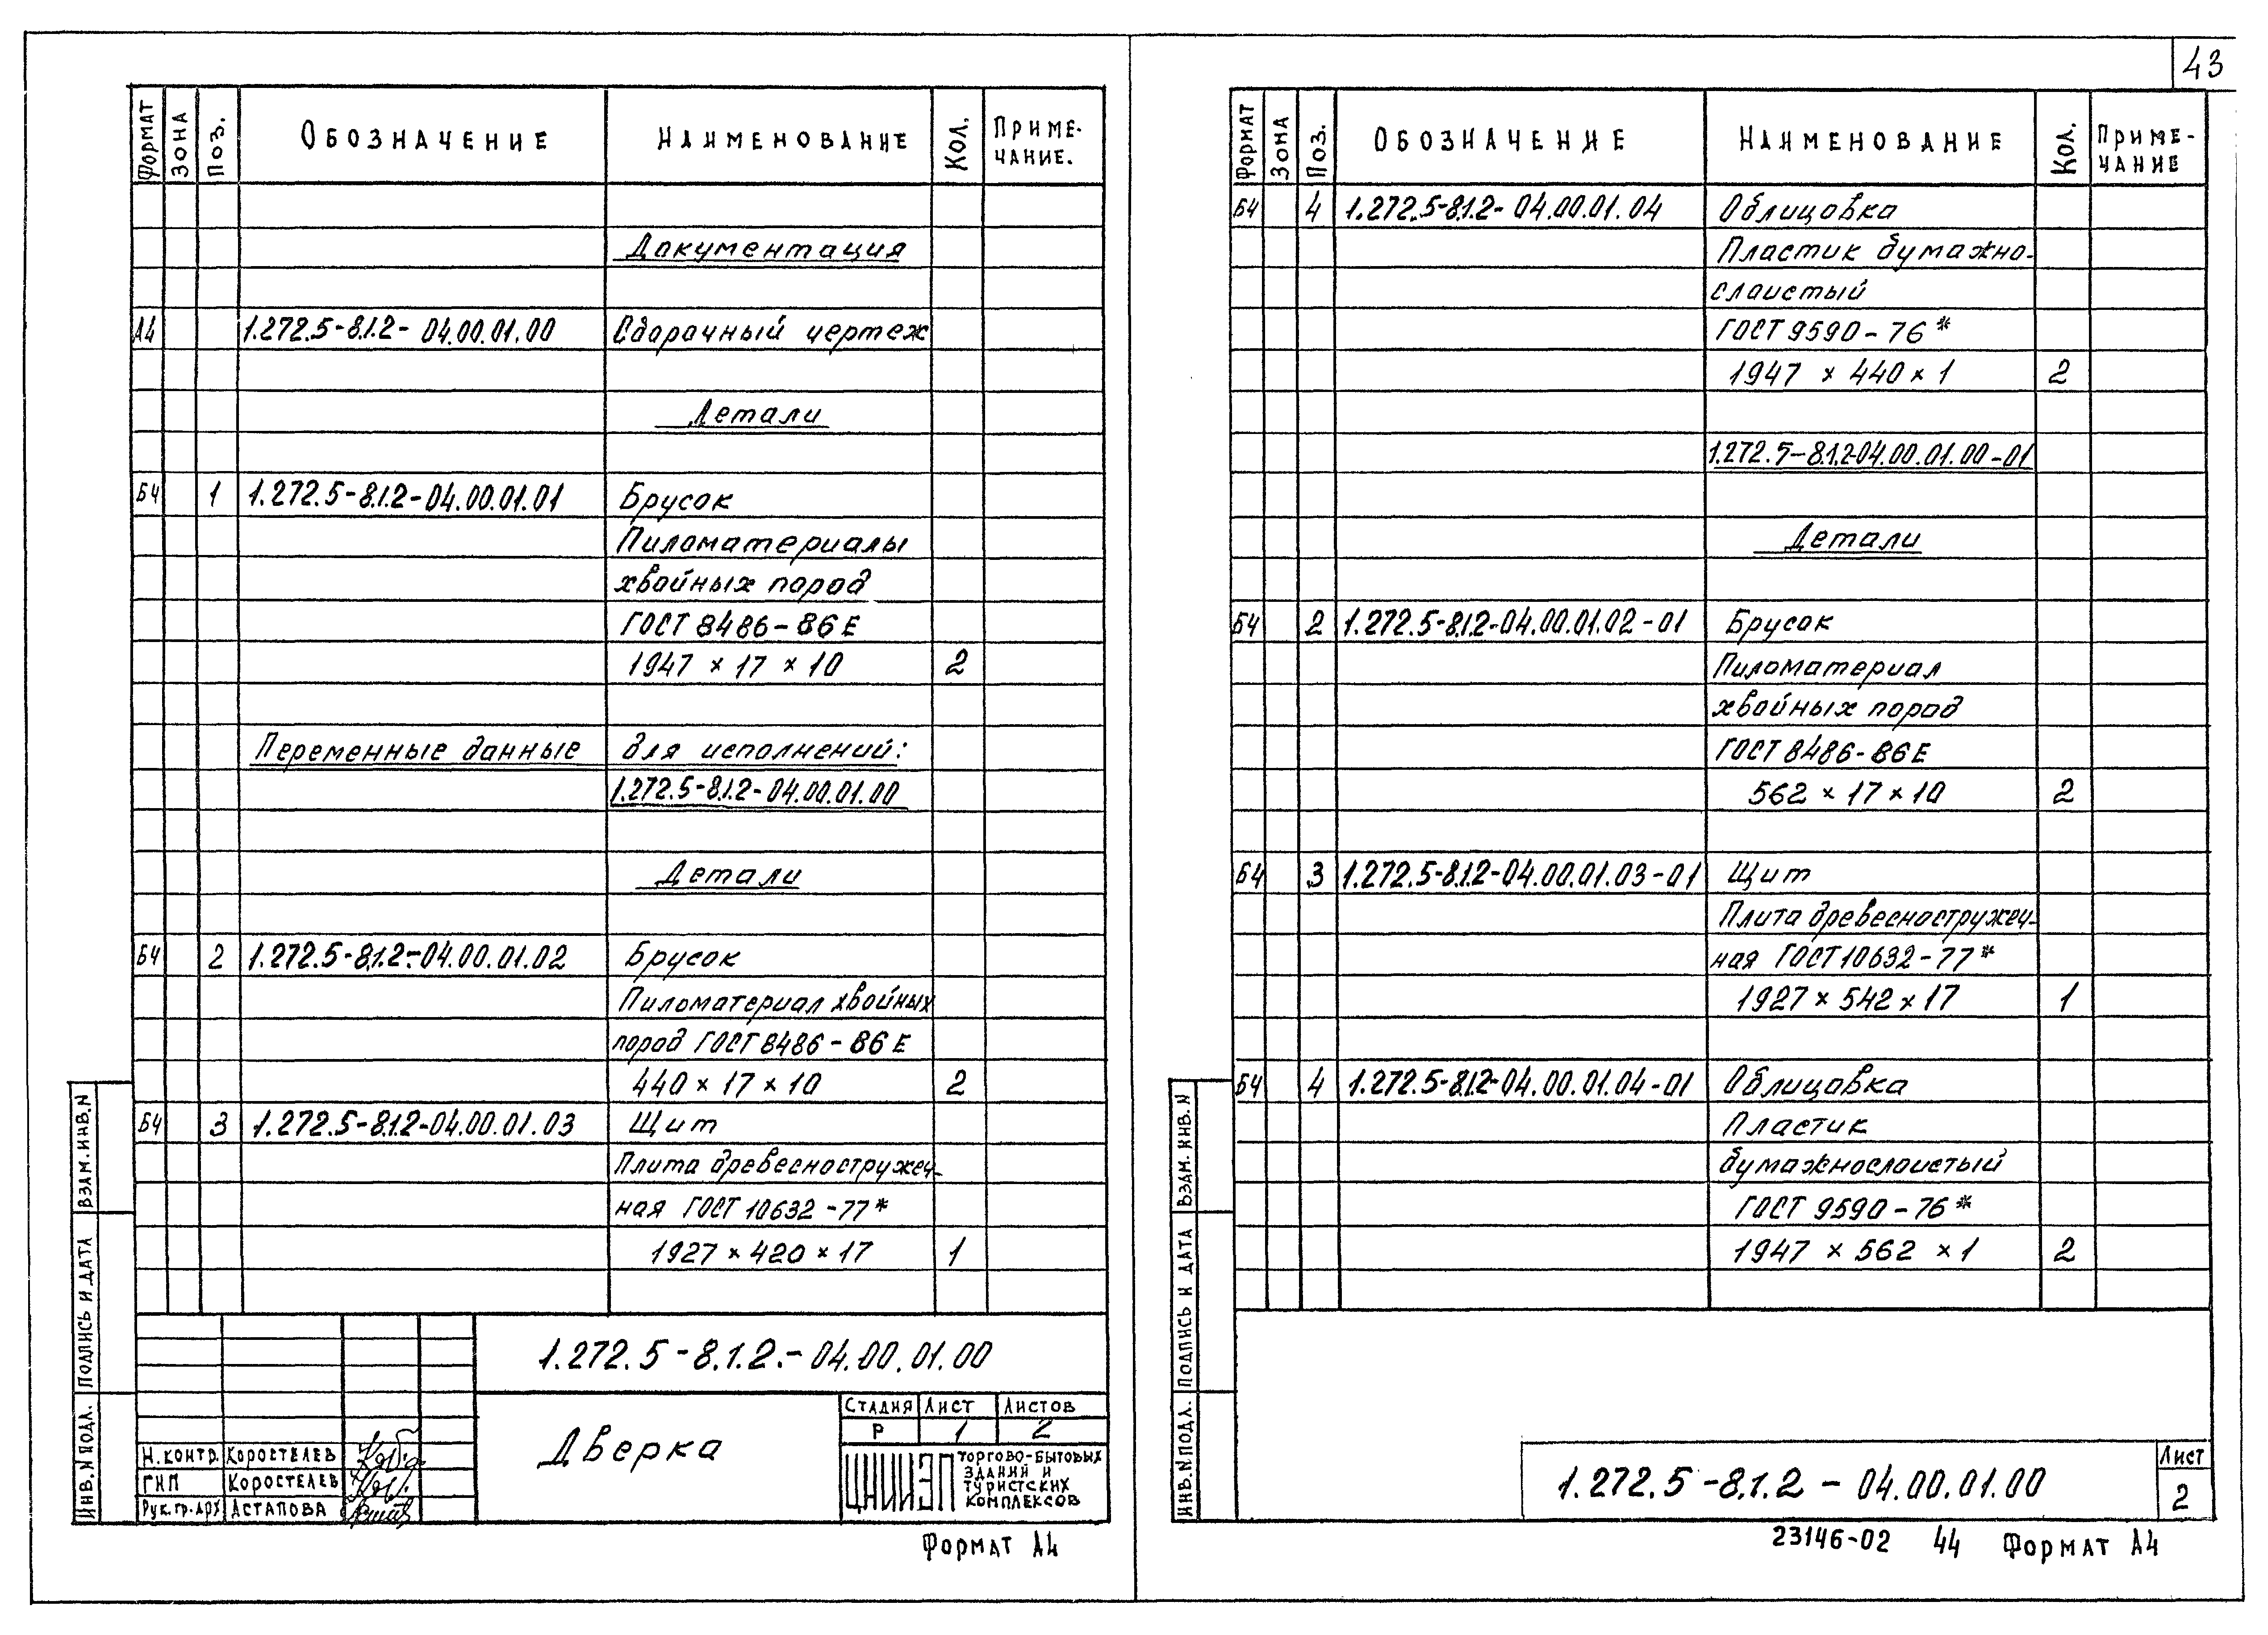 43
ФОРМАТ ЗОНА ПОЗ. ОБОЗНАЧЕНИЕ НАИМЕНОВАНИЕ КОЛ. ПРИМЕ-
ЧАНИЕ.
Документация
А4 1.272.5-8.1.2-04.00.01.00 Сборочный чертеж
Детали
Б4 1 1.272.5-8.1.2-04.00.01.01 Брусок
Пиломатериалы
хвойных пород
ГОСТ 8486-86Е
1947 × 17 × 10 2
Переменные данные для исполнений:
1.272.5-8.1.2-04.00.01.00
Детали
Б4 2 1.272.5-8.1.2-04.00.01.02 Брусок
Пиломатериал хвойных
пород ГОСТ 8486-86Е
440 × 17 × 10 2
Б4 3 1.272.5-8.1.2-04.00.01.03 Щит
Плита древесностружеч-
ная ГОСТ 10632-77*
1927 × 420 × 17 1
ВЗАМ.ИНВ.N
ПОДПИСЬ И ДАТА
ИНВ.N ПОДЛ.
1.272.5-8.1.2.-04.00.01.00
Дверка
СТАДИЯ ЛИСТ ЛИСТОВ
Р 1 2
Н.КОНТР. КОРОСТЕЛЕВ
ГИП КОРОСТЕЛЕВ
РУК.ГР.АРХ АСТАПОВА
ЦНИИЭП ТОРГОВО-БЫТОВЫХ
ЗДАНИЙ И
ТУРИСТСКИХ
КОМПЛЕКСОВ
ФОРМАТ А4
ФОРМАТ ЗОНА ПОЗ. ОБОЗНАЧЕНИЕ НАИМЕНОВАНИЕ КОЛ. ПРИМЕ-
ЧАНИЕ
Б4 4 1.272.5-8.1.2-04.00.01.04 Облицовка
Пластик бумажно-
слоистый
ГОСТ 9590-76*
1947 × 440 × 1 2
1.272.5-8.1.2-04.00.01.00-01
Детали
Б4 2 1.272.5-8.1.2-04.00.01.02-01 Брусок
Пиломатериал
хвойных пород
ГОСТ 8486-86Е
562 × 17 × 10 2
Б4 3 1.272.5-8.1.2-04.00.01.03-01 Щит
Плита древесностружеч-
ная ГОСТ 10632-77*
1927 × 542 × 17 1
Б4 4 1.272.5-8.1.2-04.00.01.04-01 Облицовка
Пластик
бумажнослоистый
ГОСТ 9590-76*
1947 × 562 × 1 2
ВЗАМ. ИНВ.N
ПОДПИСЬ И ДАТА
ИНВ.N ПОДЛ.
1.272.5-8.1.2-04.00.01.00
ЛИСТ
2
23146-02 44 ФОРМАТ А4